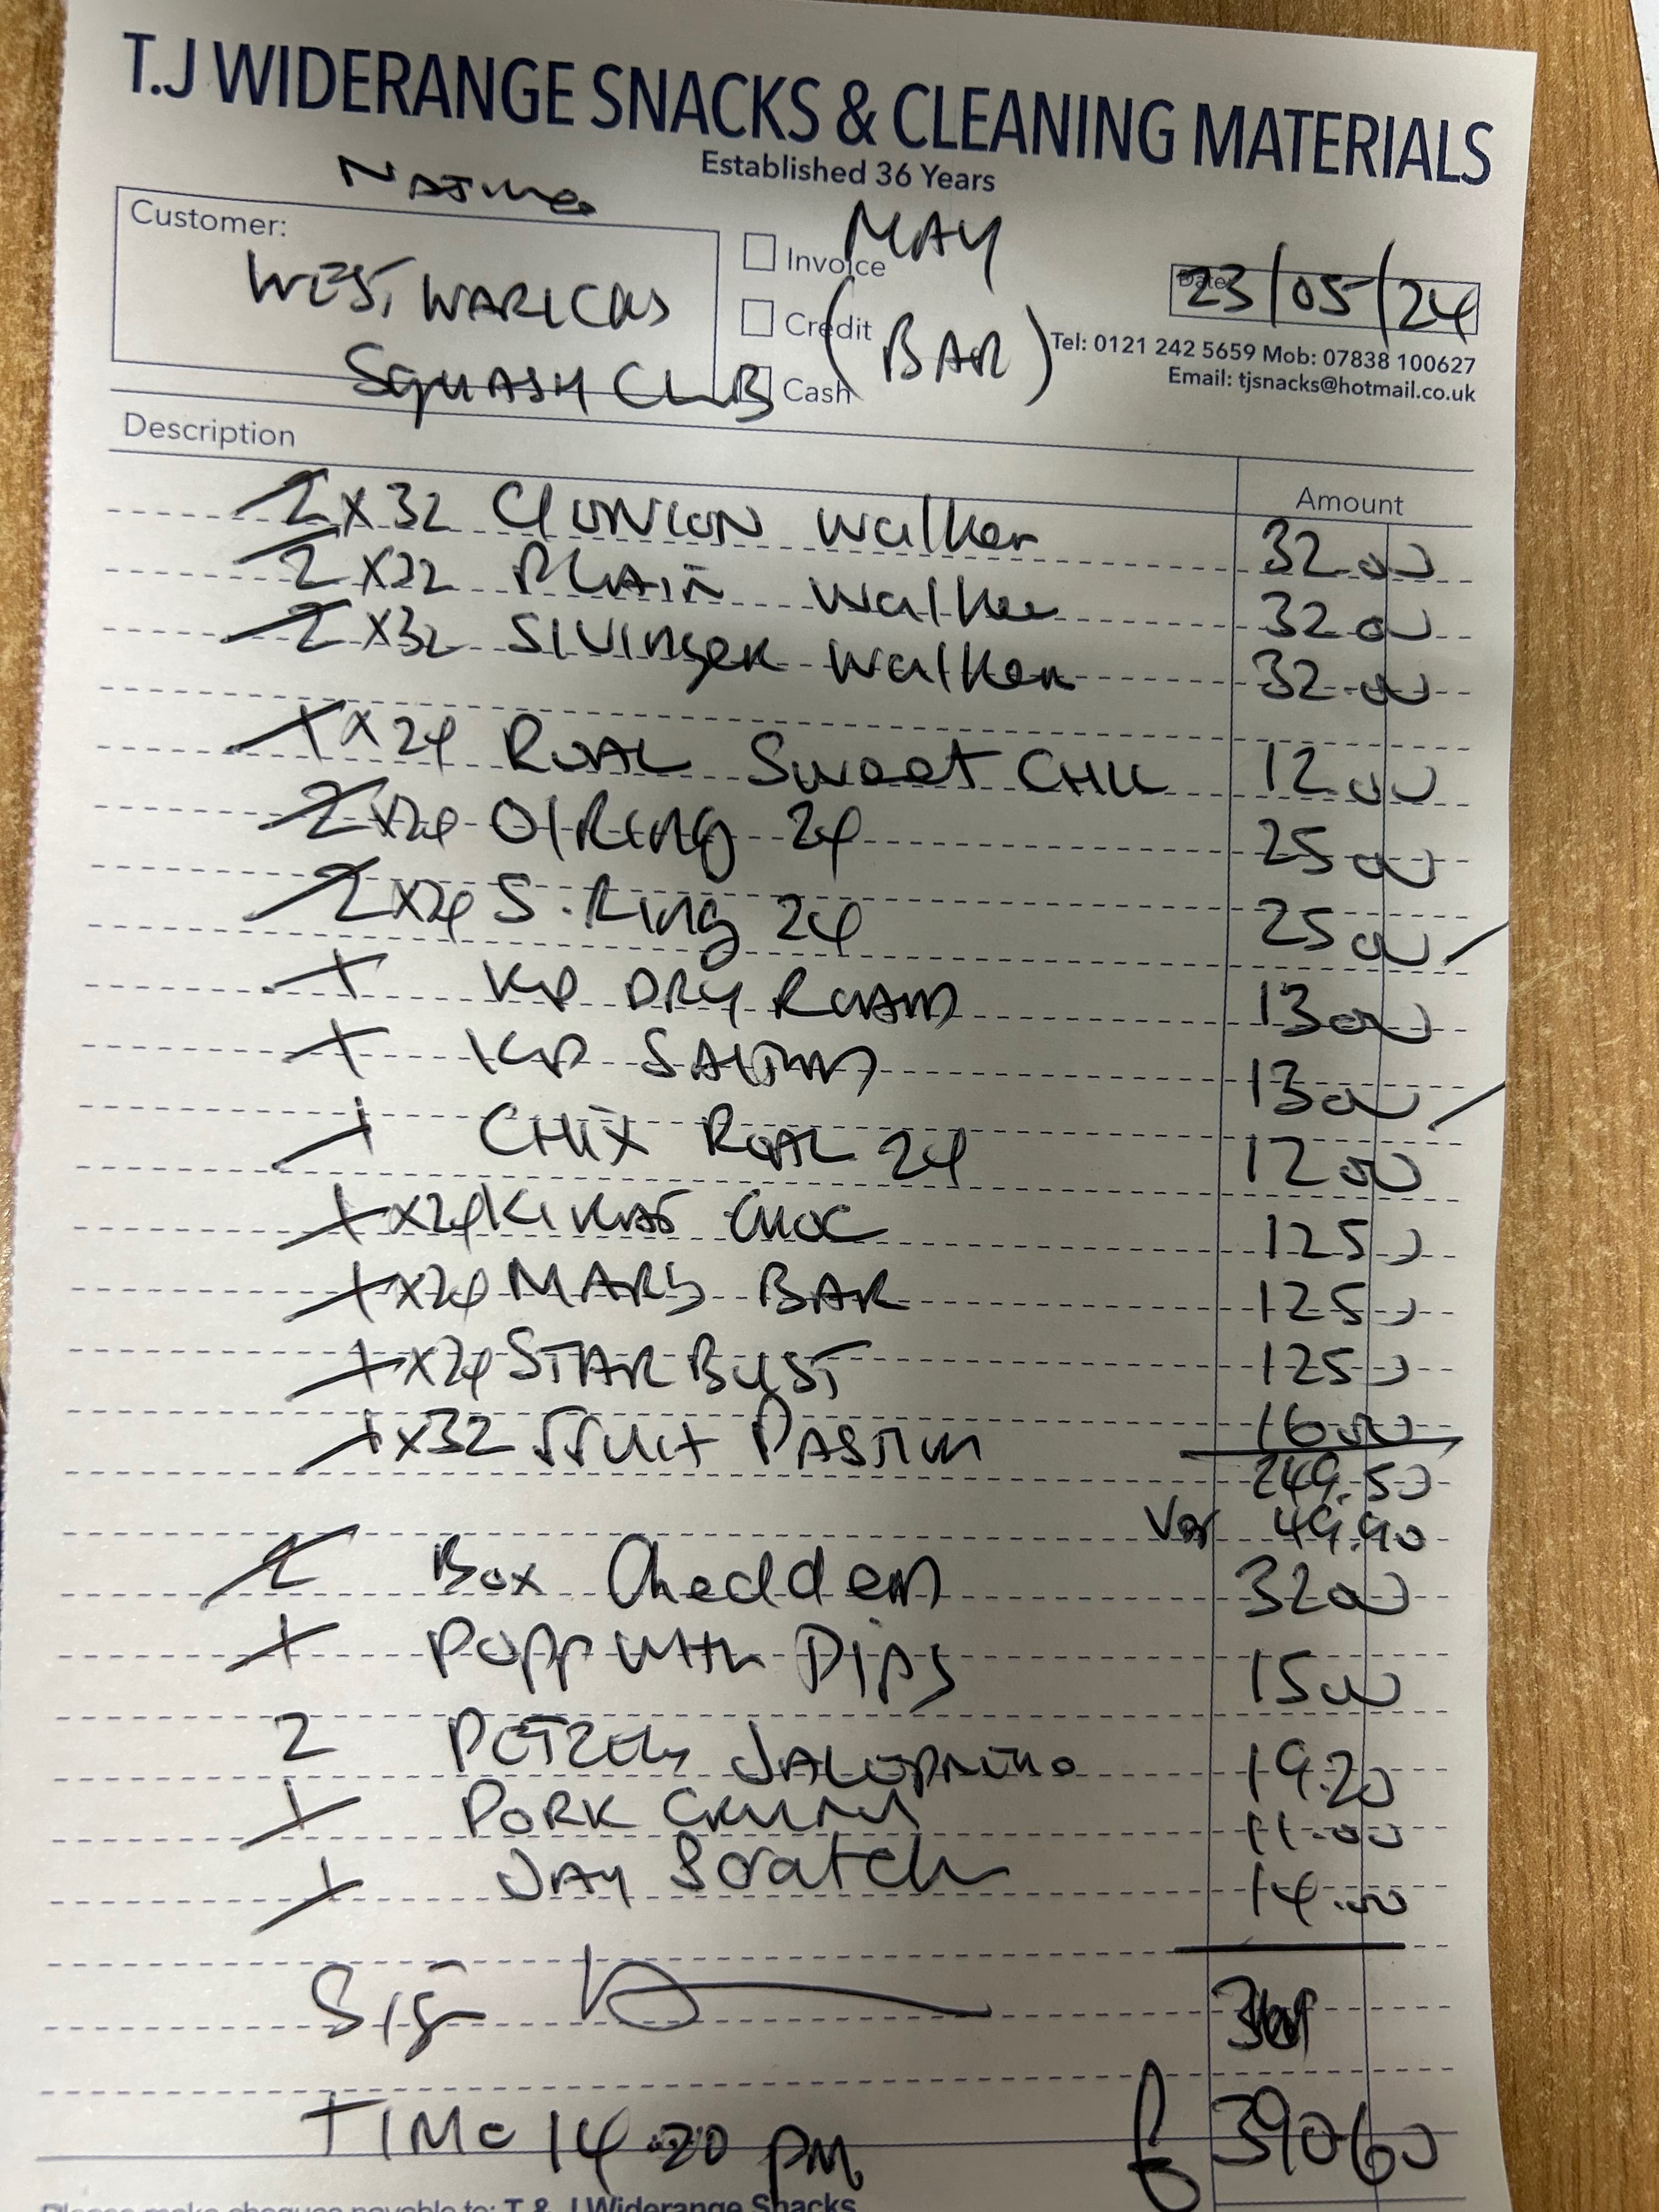 T.J WIDERANGE SNACKS & CLEANING MATERIALS
Established 36 Years
Customer:
WEST WARICKS
SQUASH CLUB
Invoice
Credit
Cash
MAY
(BAR)
Date
23/05/24
Tel: 0121 242 5659 Mob: 07838 100627
Email: tjsnacks@hotmail.co.uk
Description Amount
2 x 32 C/ONION Walker 32.00
2 x 32 PLAIN Walker 32.00
2 x 32 S/Vinger Walker 32.00
1 x 24 ROAL Sweet CHIL 12.00
2 x 24 O/Ring 24 25.00
2 x 24 S.Ring 24 25.00
1 KP DRY 13.00
1 KP 13.00
1 ROAL 24 12.00
1 x 24 CHOC 12 50
1 x 24 MARS BAR 12 50
1 x 24 STARBUST 12 50
1 x 32 FRUIT 16.00
249.50
Vat 49.90
2 Box Chedders 32.00
1 Dips 15.00
2 19.20
1 PORK 11.00
1 JAY Scratch 14.00
Sig
TIME 14.20 PM £ 390.60
Please make cheques payable to: T & J Widerange Snacks